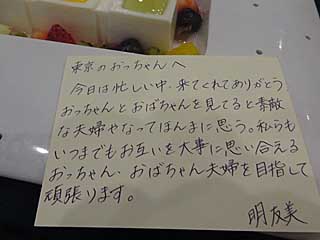 東京のおっちゃんへ
今日は忙しい中、来てくれてありがとう。
おっちゃんとおばちゃんを見てると素敵
な夫婦やなってほんまに思う。私らも
いつまでもお互いを大事に思い合える
おっちゃん、おばちゃん夫婦を目指して
頑張ります。
明友美